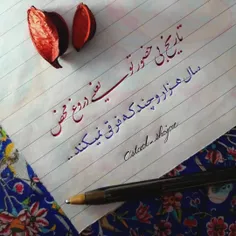 تاریخ بی حضور تو یعنی دروغ محض
سال هزار و چند که فرقی نمیکند..
Ostad_shojae